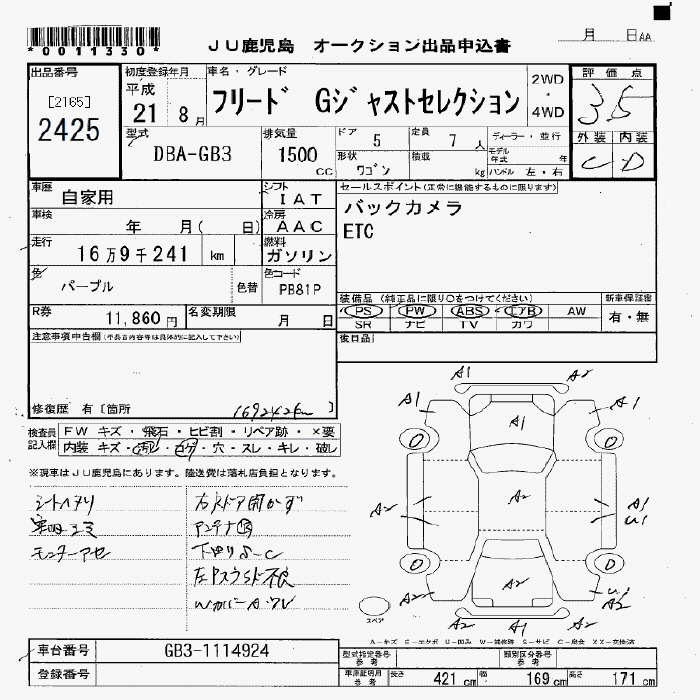 *0011330*
JU鹿児島 オークション出品申込書
月 日 AA
出品番号
[2165]
2425
初度登録年月
平成
21 8 月
車名・グレード
フリード Gジャストセレクション
2WD
・
4WD
評価点
3.5
外装 内装
C D
型式
DBA-GB3
排気量
1500
CC
ドア
5
定員
7 人
ディーラー・並行
形状
ワゴン
積載
kg
モデル年式 年
ハンドル 左・右
車歴
自家用
シフト
IAT
車検
年 月( 日)
冷房
AAC
走行
16万9千241 km
燃料
ガソリン
色
パープル
色替
色コード
PB81P
セールスポイント(正常に機能するものに限ります)
バックカメラ
ETC
装備品 (純正品に限り○をつけてください)
PS PW ABS エアB AW
SR ナビ TV カワ
新車保証書
有・無
R券
11,860 円
名変期限
月 日
注意事項申告欄
後日品
修復歴 有〔箇所
〕
169242km
検査員
記入欄
FW キズ・飛石・ヒビ割・リペア跡・×要
内装 キズ・汚レ・コゲ・穴・スレ・キレ・破レ
※現車はJU鹿児島にあります。陸送費は落札店負担となります。
シートヘタリ
モニターアセ
右
アンテナ
下回りS-C
A1 A2
A1 A1 A1
A2 A2 A1
U1
A2
A2 U1
A2
A2 A2
スペア
車台番号
GB3-1114924
登録番号
型式指定番号
参考
類別区分番号
参考
車庫証明用
参考
長さ 421 cm 幅 169 cm 高さ 171 cm